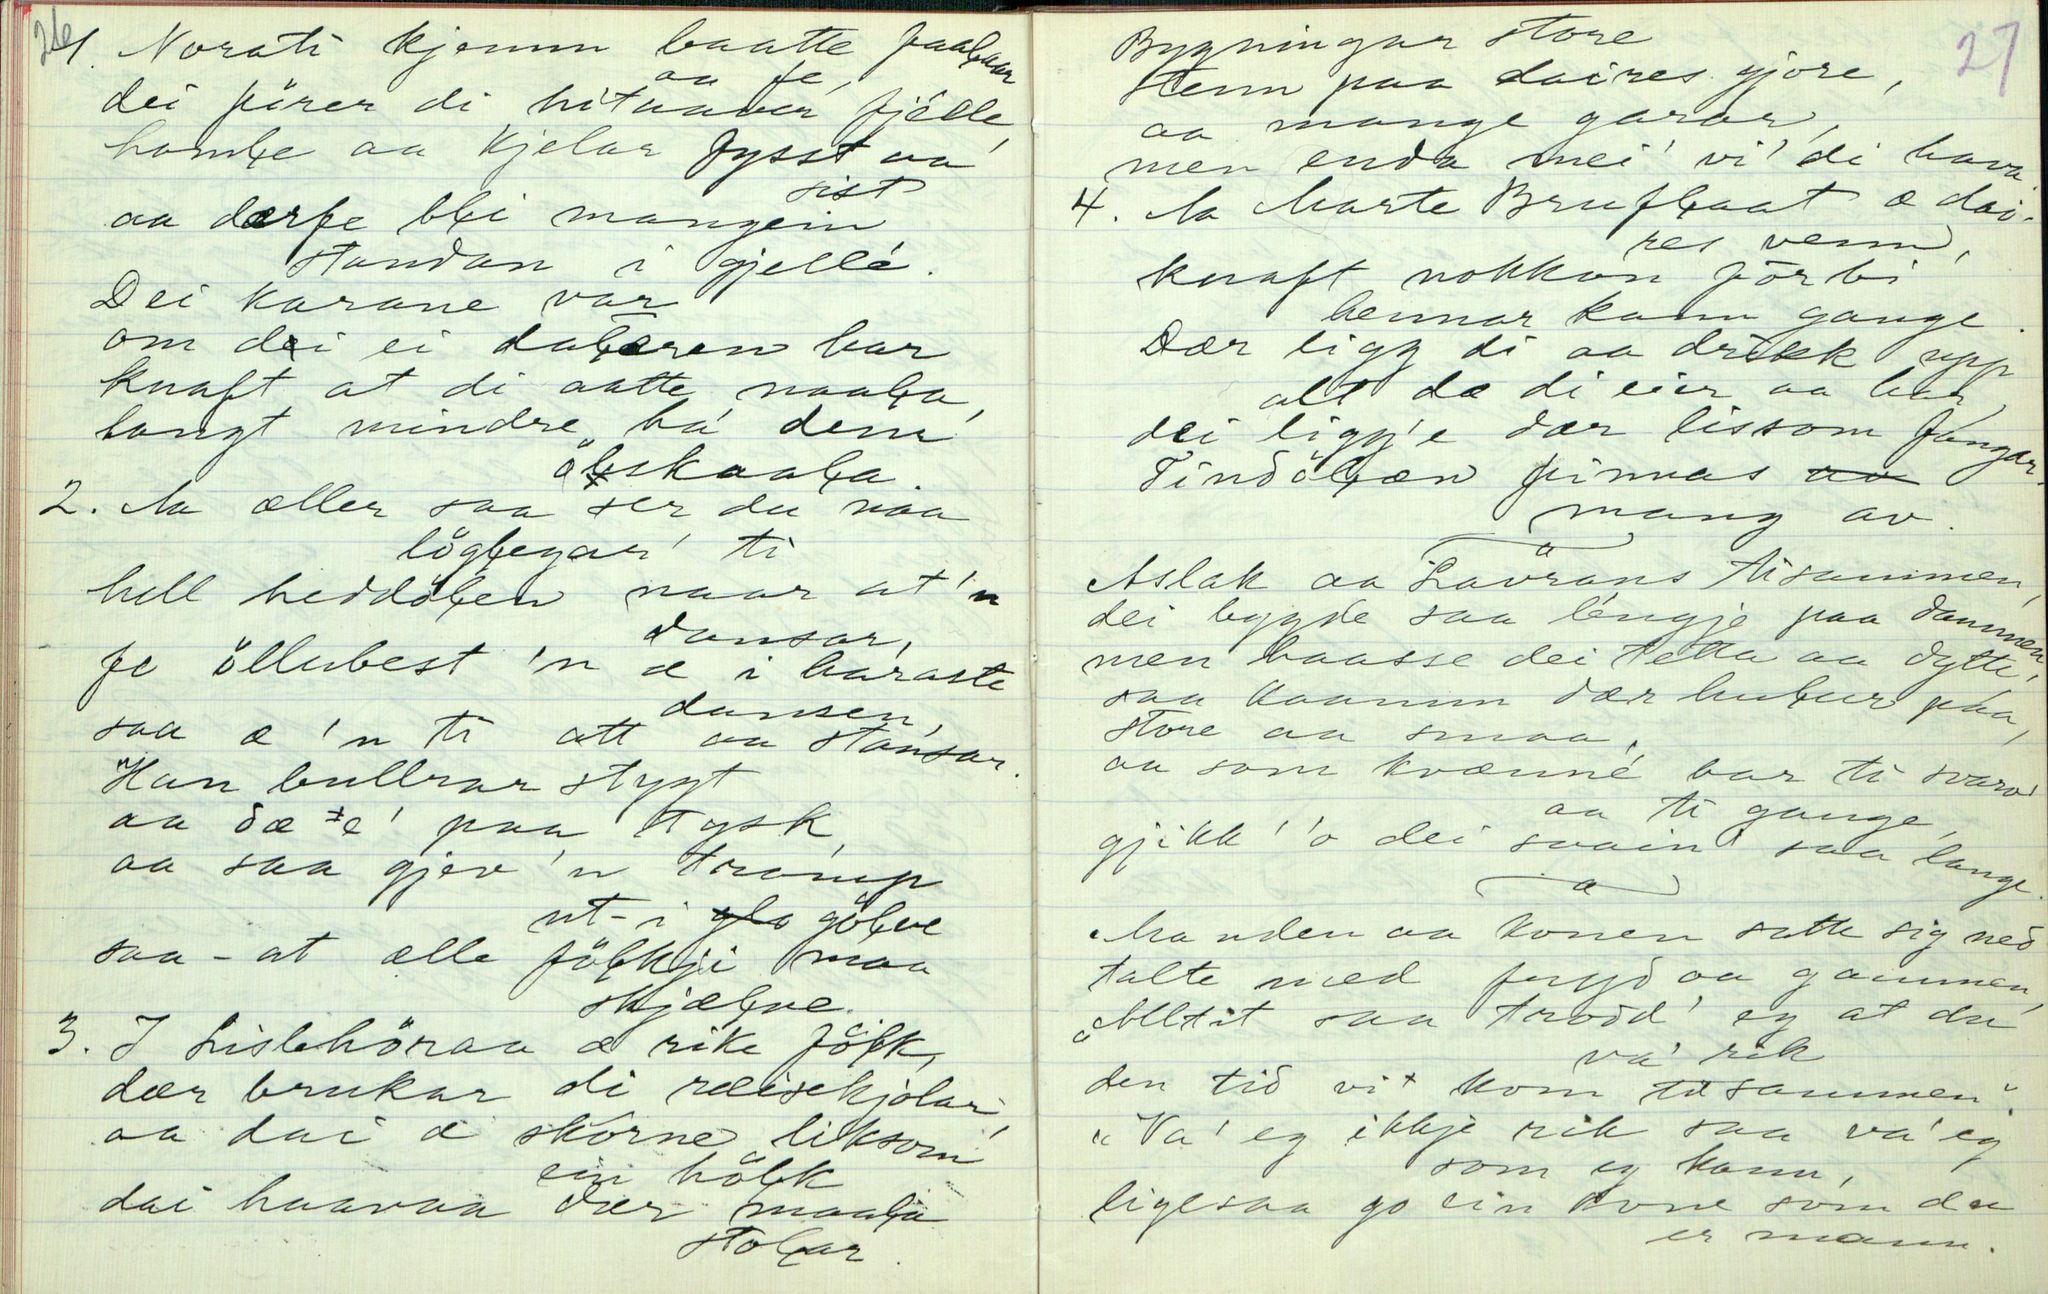 26
1. Norati kjemm baatte faabaar
aa fe,
dei förer di hitaaver fjélle,
hombe aa kjelar fysst aa
sist
aa dærfe bli mangein
standan i gjellé.
Dei karane var
om dei ei dalæren har
knaft at di aatte naala,
langt mindre ha' dem
ölskaala.
2. Aa æller saa ser du naa
löglegar' ti
hell heddölen naar at'n
dansar,
fe öllubest 'n æ i haraste
dansen,
saa æ 'n ti att aa stansar.
"Han bullrar stygt
aa dæ e' paa tysk
aa saa gjev 'n tramp
ut-i gölve
saa-at ælle fölkji maa
skjælve.
3. I Lislehöraa æ rike fölk,
dær brukar di reisekjolar,
aa dai æ skorne liksom
ein hölk
dai haavaa dær maala
stolar.
27
Bygningar store
Stenn paa daires gjore,
aa mange garar,
men enda mei' vi' di hava.
4. Aa Marte Bruflaat æ dai-
res venn,
knaft nokkon förbi
hennar kann gange.
Dær ligg di aa drikk upp
alt dæ di eier aa har,
dei ligg'e dær lissom fangar.
Tindölæn finnas
mang av.
Aslak aa Lavrans tisammen,
dei bygde saa léngje paa dammen,
men baasse dei tetta aa dytte,
saa kaamm dær hulur paa,
store aa smaa,
aa som kvænné var ti svarv'
aa ti gange,
gjikk' 'o dei svain' saa lange.
Manden aa konen satte sig ned
talte med fryd aa gammen,
"Alltit saa trodd' eg at du
va' rik
den tid vi kom tilsammen".
"Va' eg ikkje rik saa va' eg
som eg kann,
ligesaa go ein kone som du
er mann.